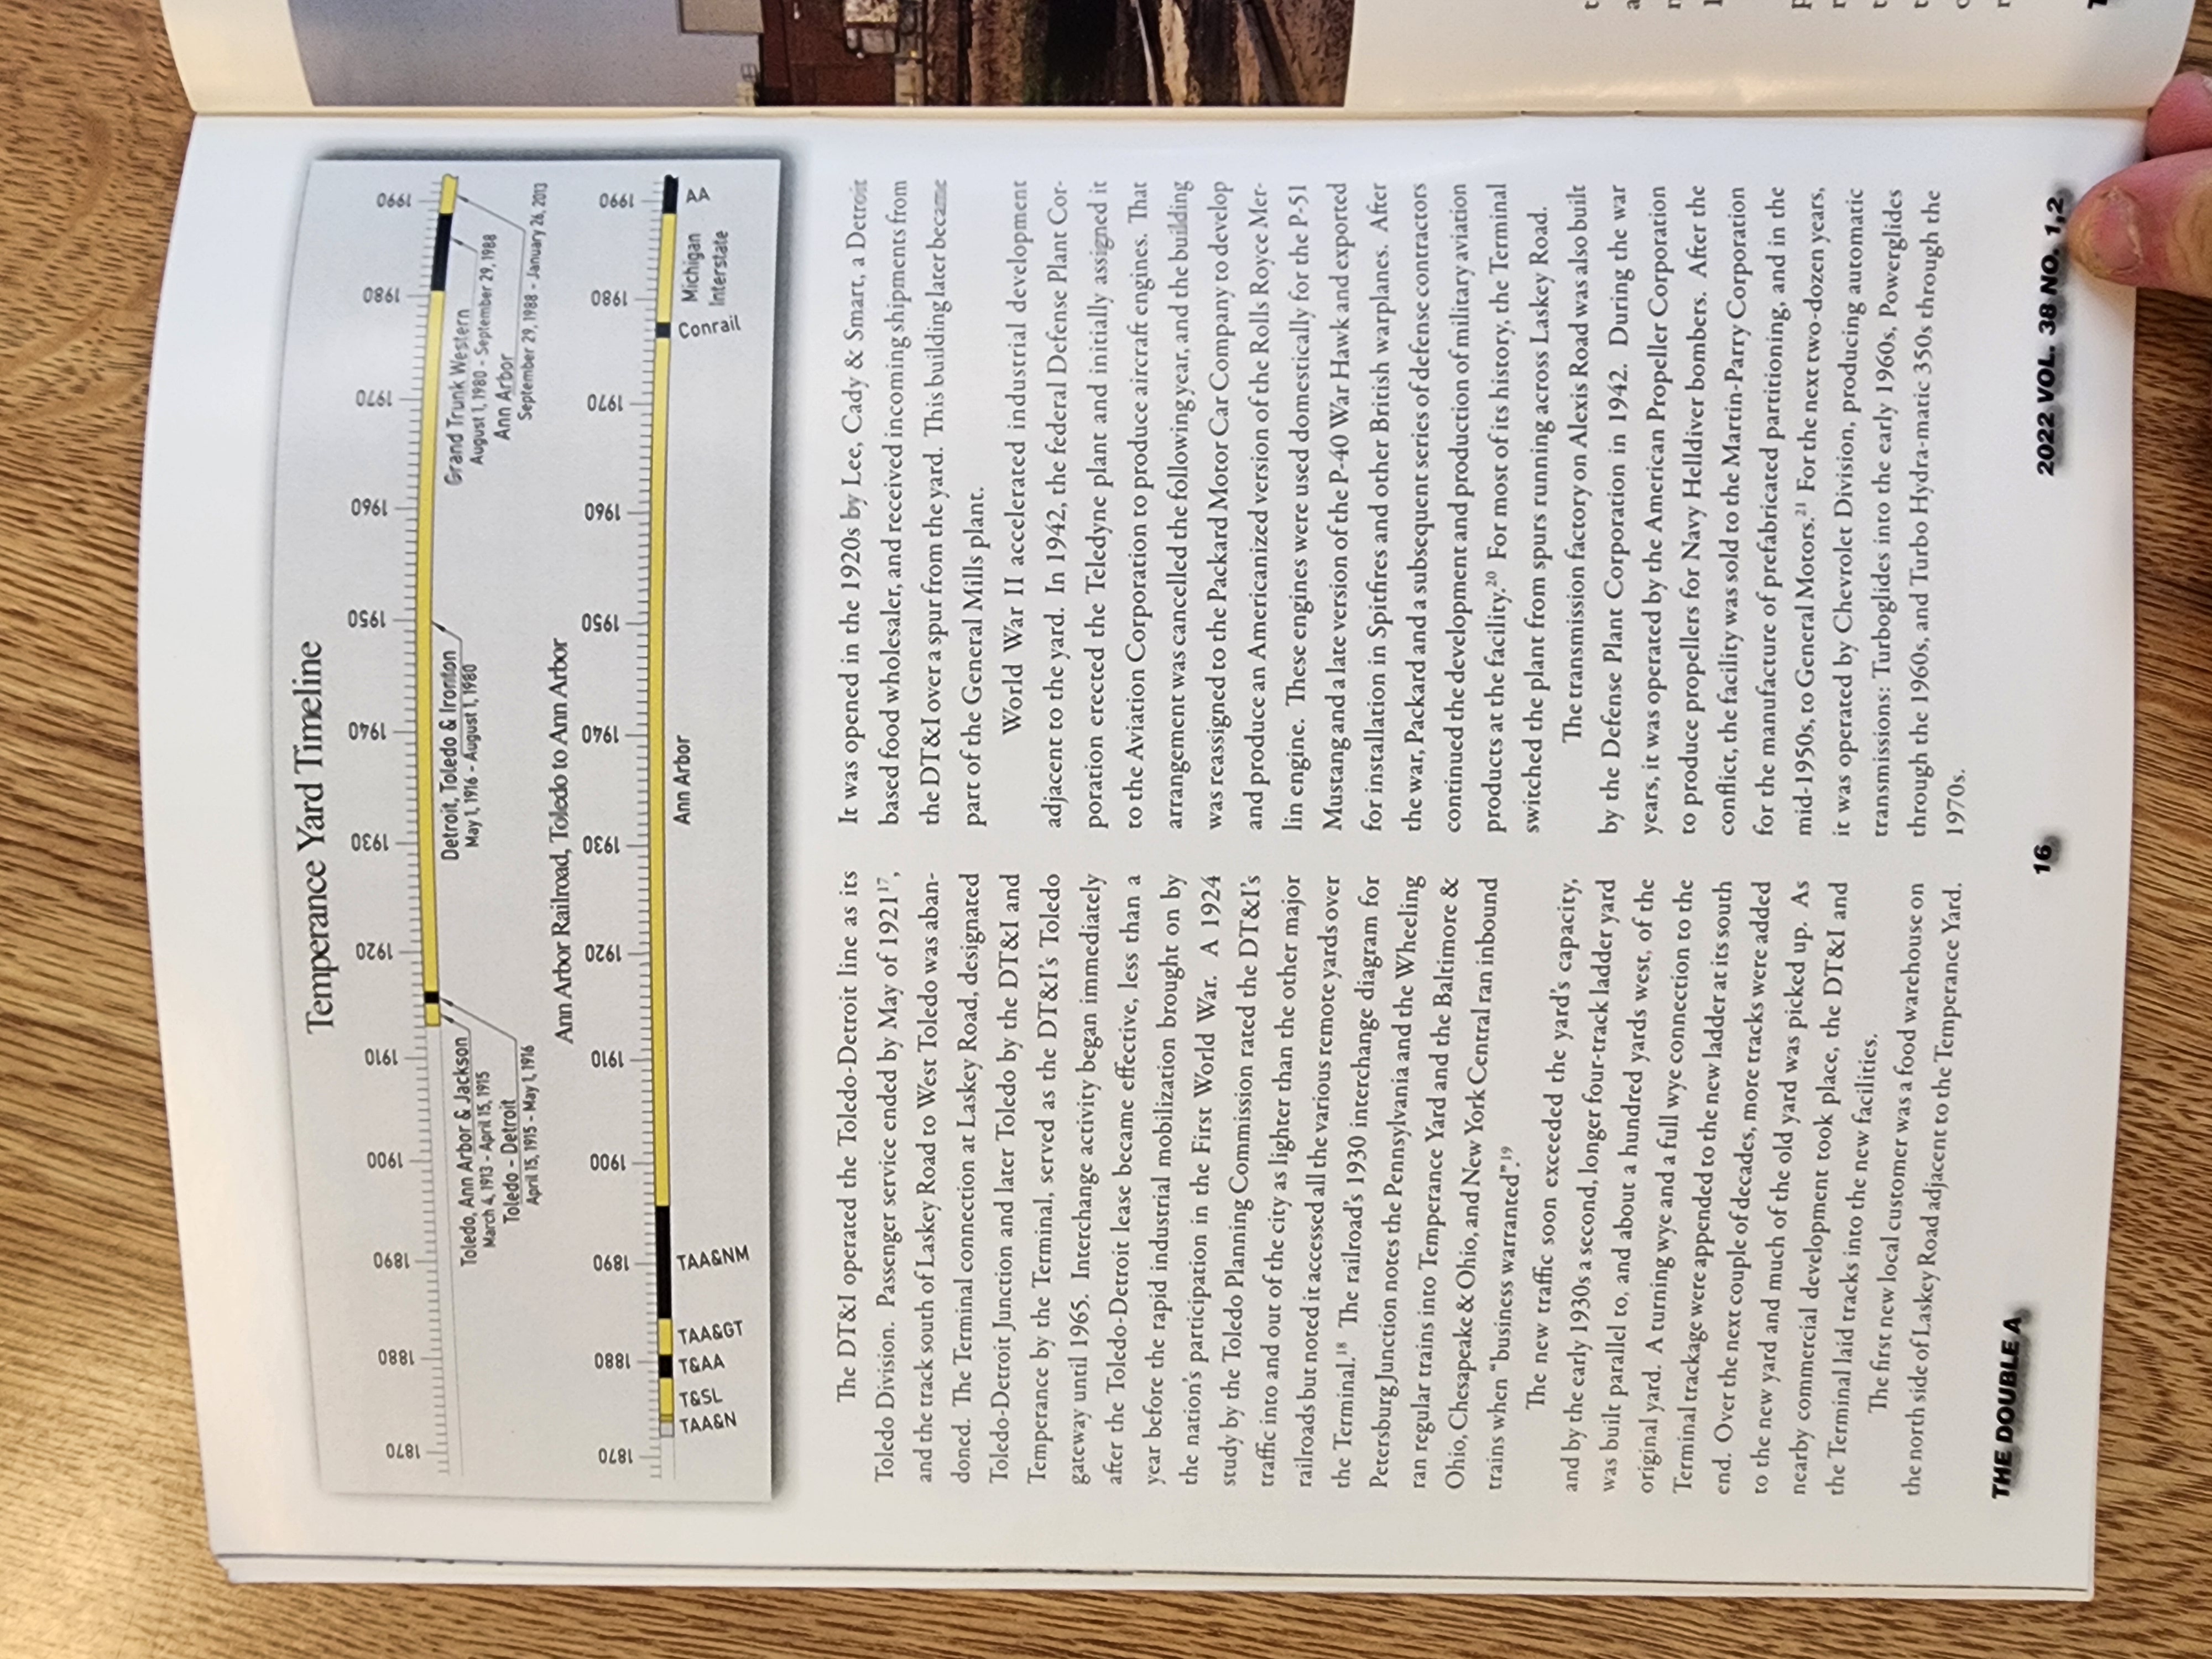 Temperance Yard Timeline
1870 1880 1890 1900 1910 1920 1930 1940 1950 1960 1970 1980 1990
Toledo, Ann Arbor & Jackson
March 4, 1913 - April 15, 1915
Toledo - Detroit
April 15, 1915 - May 1, 1916
Detroit, Toledo & Ironton
May 1, 1916 - August 1, 1980
Grand Trunk Western
August 1, 1980 - September 29, 1988
Ann Arbor
September 29, 1988 - January 26, 2013
Ann Arbor Railroad, Toledo to Ann Arbor
1870 1880 1890 1900 1910 1920 1930 1940 1950 1960 1970 1980 1990
TAA&N
T&SL
T&AA
TAA&GT
TAA&NM
Ann Arbor
Conrail
Michigan
Interstate
AA
The DT&I operated the Toledo-Detroit line as its
Toledo Division. Passenger service ended by May of 1921¹⁷,
and the track south of Laskey Road to West Toledo was aban-
doned. The Terminal connection at Laskey Road, designated
Toledo-Detroit Junction and later Toledo by the DT&I and
Temperance by the Terminal, served as the DT&I's Toledo
gateway until 1965. Interchange activity began immediately
after the Toledo-Detroit lease became effective, less than a
year before the rapid industrial mobilization brought on by
the nation's participation in the First World War. A 1924
study by the Toledo Planning Commission rated the DT&I's
traffic into and out of the city as lighter than the other major
railroads but noted it accessed all the various remote yards over
the Terminal.¹⁸ The railroad's 1930 interchange diagram for
Petersburg Junction notes the Pennsylvania and the Wheeling
ran regular trains into Temperance Yard and the Baltimore &
Ohio, Chesapeake & Ohio, and New York Central ran inbound
trains when "business warranted".¹⁹
The new traffic soon exceeded the yard's capacity,
and by the early 1930s a second, longer four-track ladder yard
was built parallel to, and about a hundred yards west, of the
original yard. A turning wye and a full wye connection to the
Terminal trackage were appended to the new ladder at its south
end. Over the next couple of decades, more tracks were added
to the new yard and much of the old yard was picked up. As
nearby commercial development took place, the DT&I and
the Terminal laid tracks into the new facilities.
The first new local customer was a food warehouse on
the north side of Laskey Road adjacent to the Temperance Yard.
It was opened in the 1920s by Lee, Cady & Smart, a Detroit
based food wholesaler, and received incoming shipments from
the DT&I over a spur from the yard. This building later became
part of the General Mills plant.
World War II accelerated industrial development
adjacent to the yard. In 1942, the federal Defense Plant Cor-
poration erected the Teledyne plant and initially assigned it
to the Aviation Corporation to produce aircraft engines. That
arrangement was cancelled the following year, and the building
was reassigned to the Packard Motor Car Company to develop
and produce an Americanized version of the Rolls Royce Mer-
lin engine. These engines were used domestically for the P-51
Mustang and a late version of the P-40 War Hawk and exported
for installation in Spitfires and other British warplanes. After
the war, Packard and a subsequent series of defense contractors
continued the development and production of military aviation
products at the facility.²⁰ For most of its history, the Terminal
switched the plant from spurs running across Laskey Road.
The transmission factory on Alexis Road was also built
by the Defense Plant Corporation in 1942. During the war
years, it was operated by the American Propeller Corporation
to produce propellers for Navy Helldiver bombers. After the
conflict, the facility was sold to the Martin-Parry Corporation
for the manufacture of prefabricated partitioning, and in the
mid-1950s, to General Motors.²¹ For the next two-dozen years,
it was operated by Chevrolet Division, producing automatic
transmissions: Turboglides into the early 1960s, Powerglides
through the 1960s, and Turbo Hydra-matic 350s through the
1970s.
THE DOUBLE A
16
2022 VOL. 38 NO. 1,2